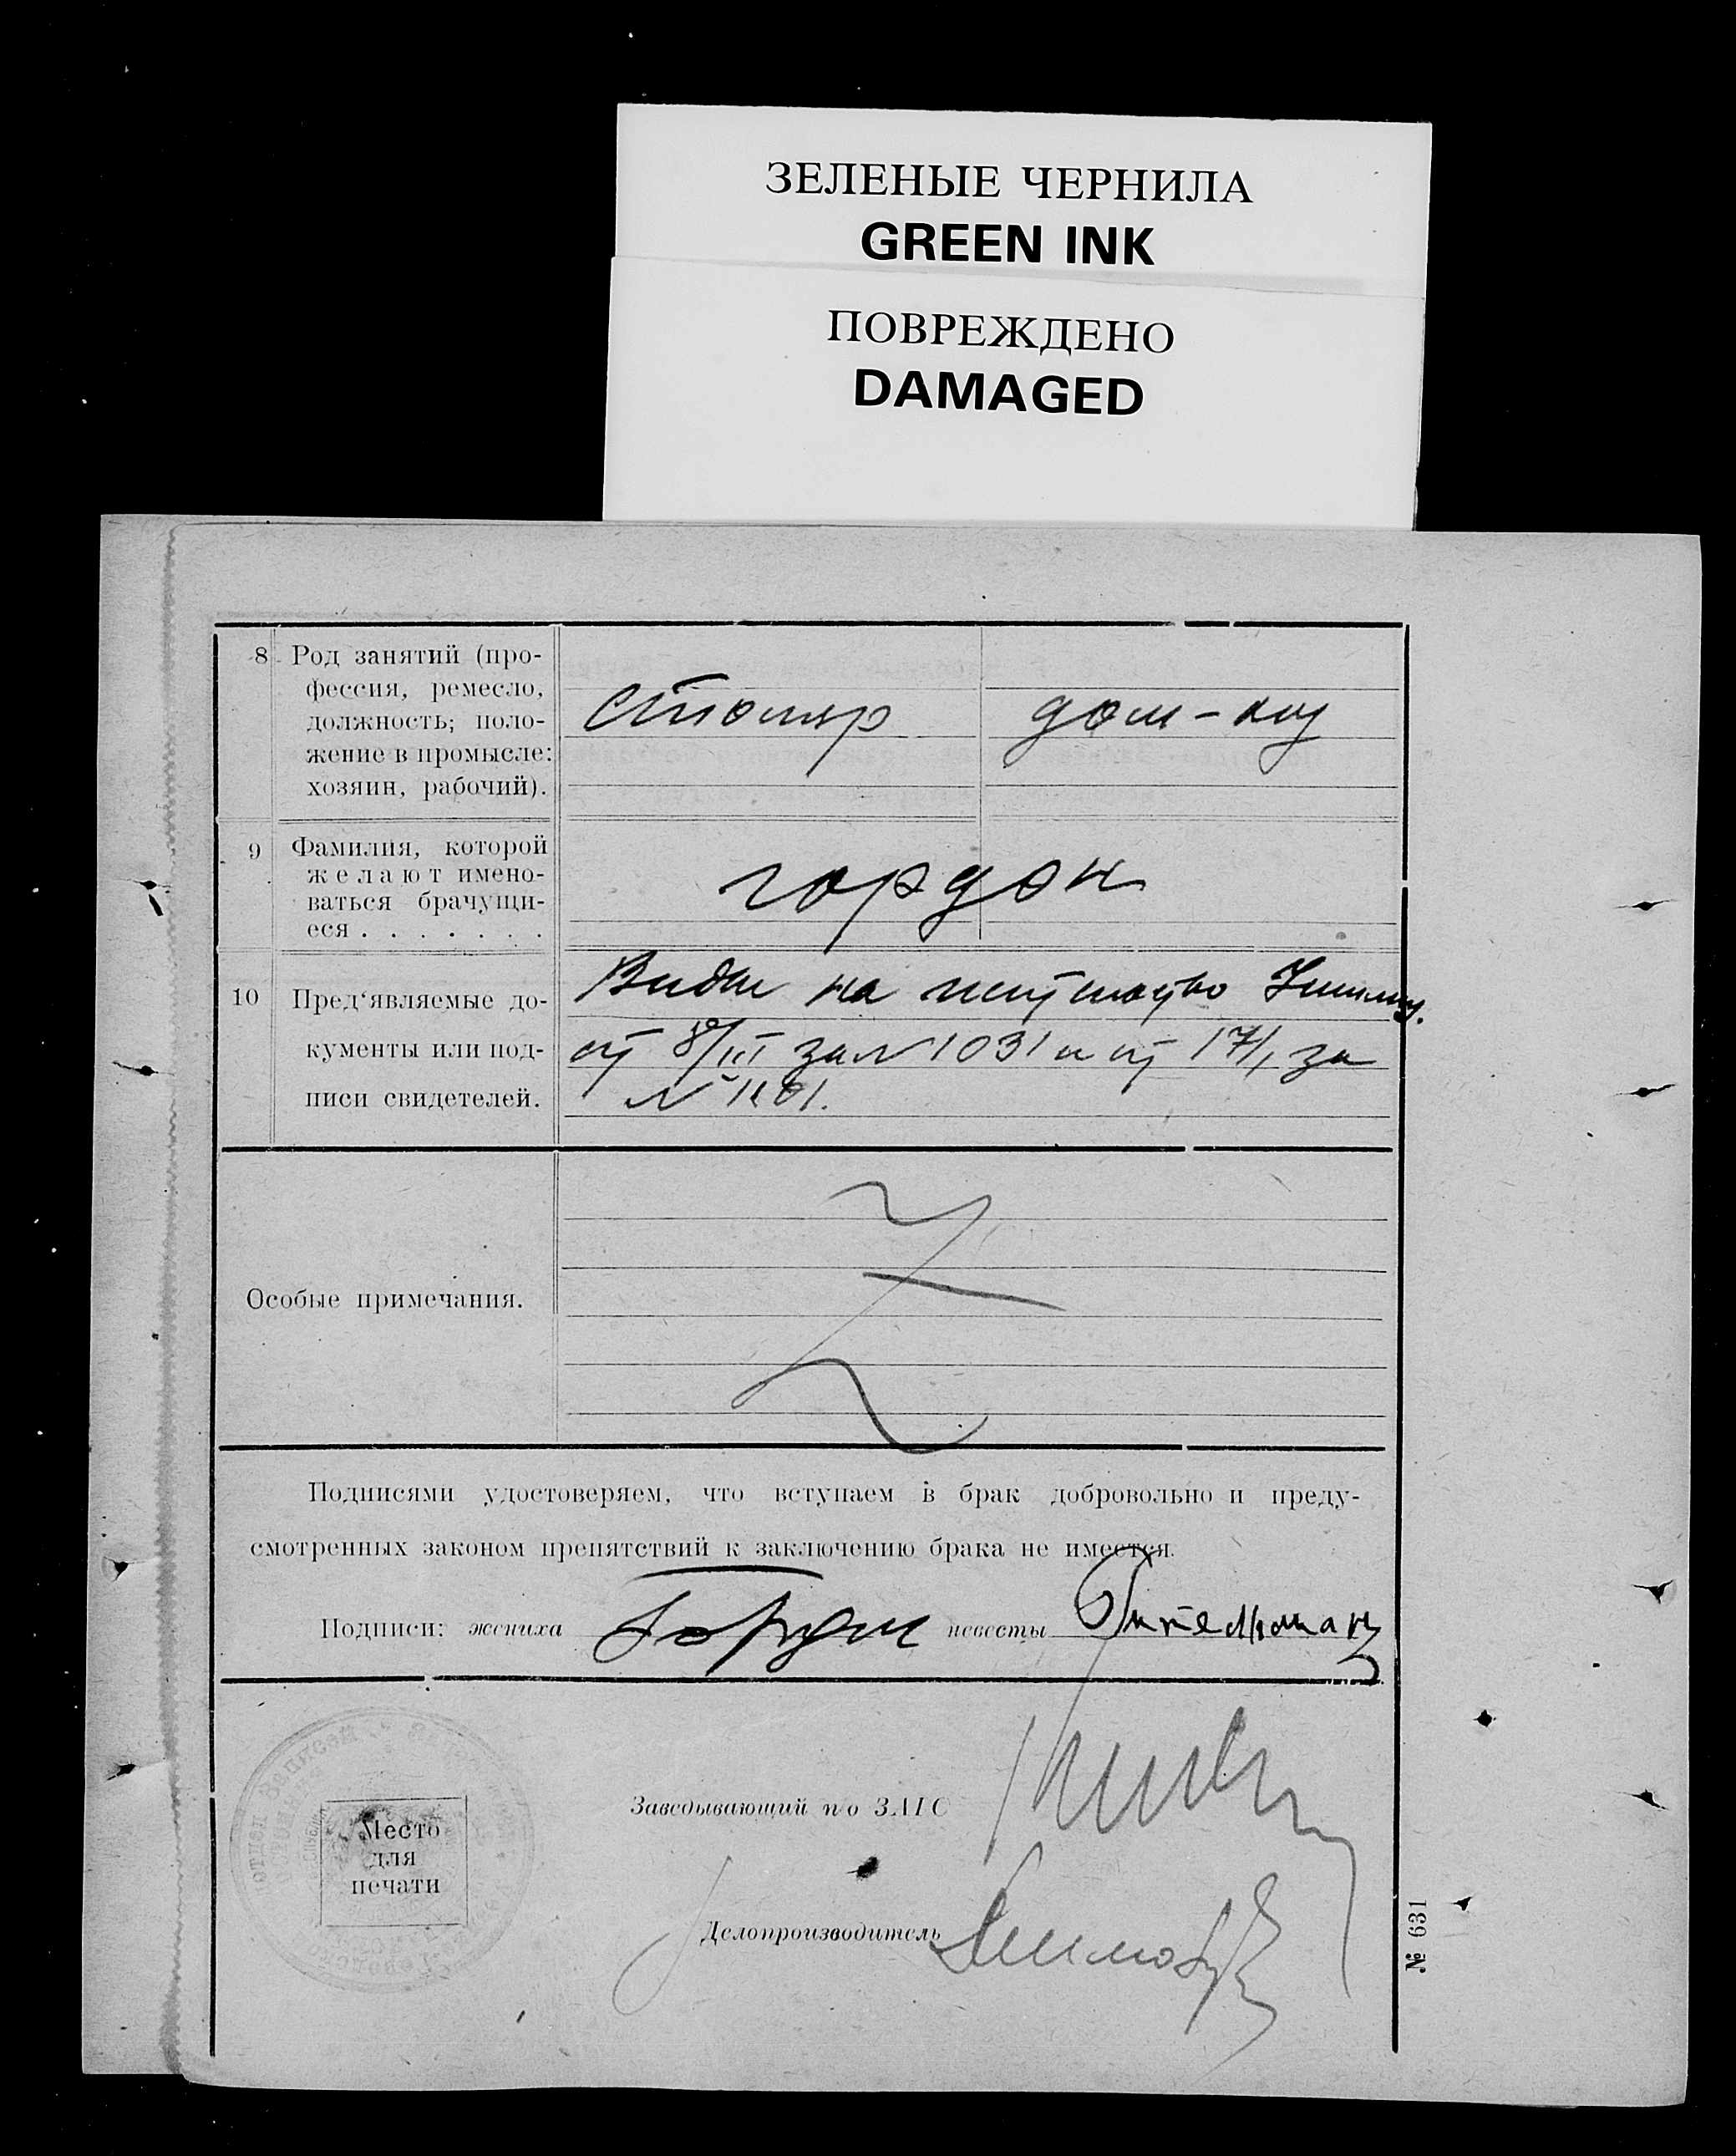 ЗЕЛЕНЫЕ ЧЕРНИЛА
GREEN INK
ПОВРЕЖДЕНО
DAMAGED
8 Род занятий (про-
фессия, ремесло,
должность; поло-
жение в промысле:
хозяин, рабочий).
столяр
дом-хоз
9 Фамилия, которой
желают имено-
ваться брачущи-
еся . . . . . . .
гордон
10 Пред‘являемые до-
кументы или под-
писи свидетелей.
Виды на жительство
от 8/III за N 1031 и от 17/I за
N
Особые примечания.
Подписями удостоверяем, что вступаем в брак добровольно и преду-
смотренных законом препятствий к заключению брака не имеется.
Подписи: жениха Гордон невесты
Заведывающий п/о ЗАГС
Место
для
печати
Делопроизводитель
№ 631